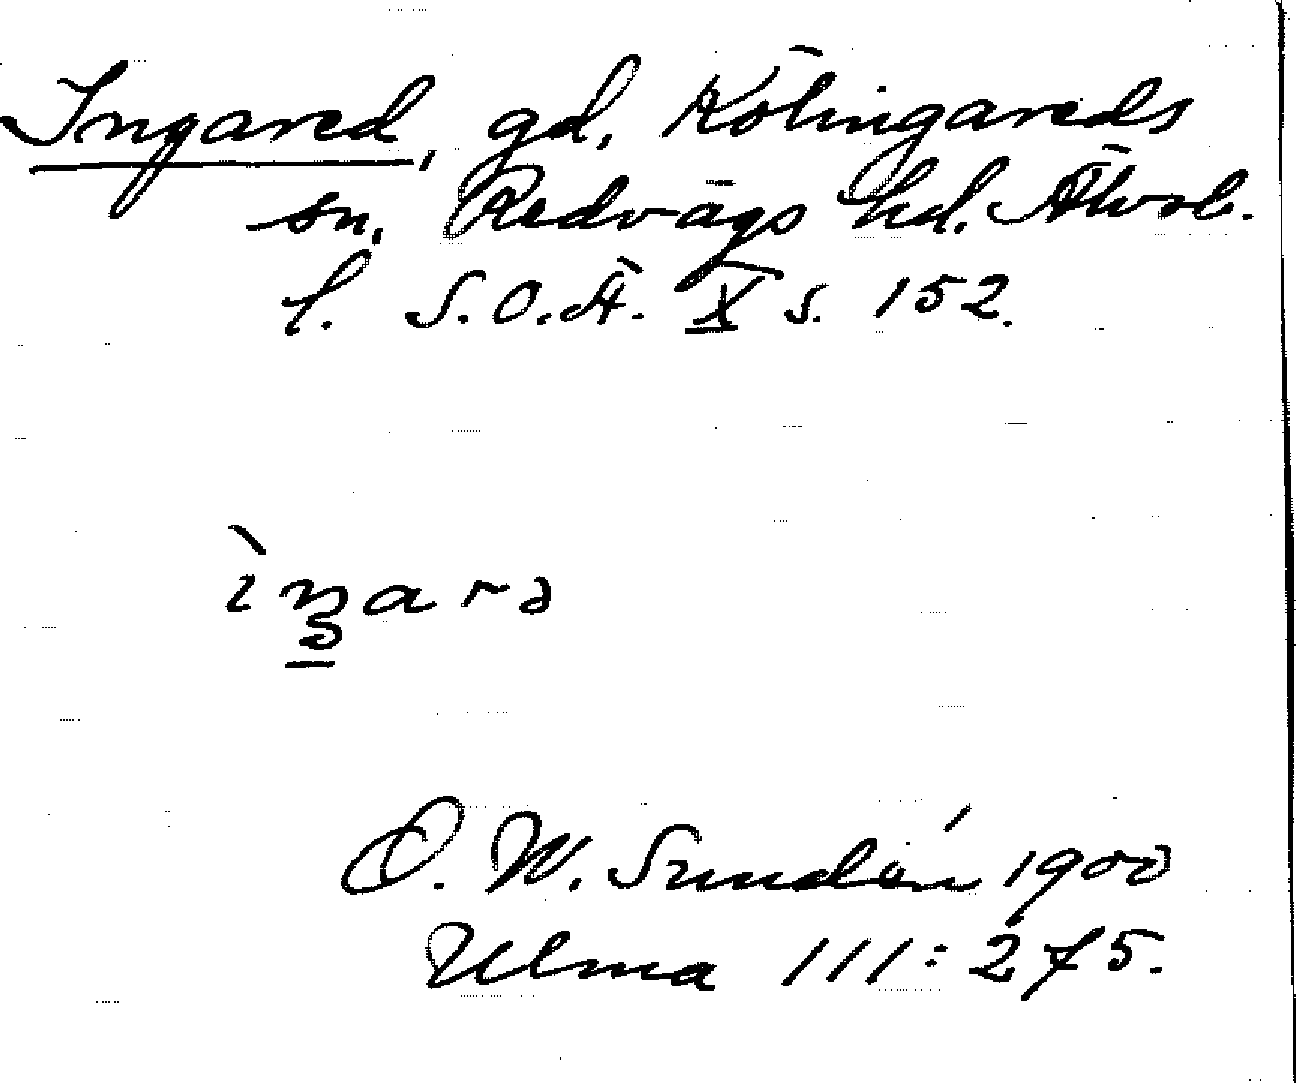 Ingared, gd, Kölingareds
sn. Redvägs hd. Älvsb.
l. S.O.Ä. X s. 152.
D. W. Sundén 1900
Ulma 111:275.